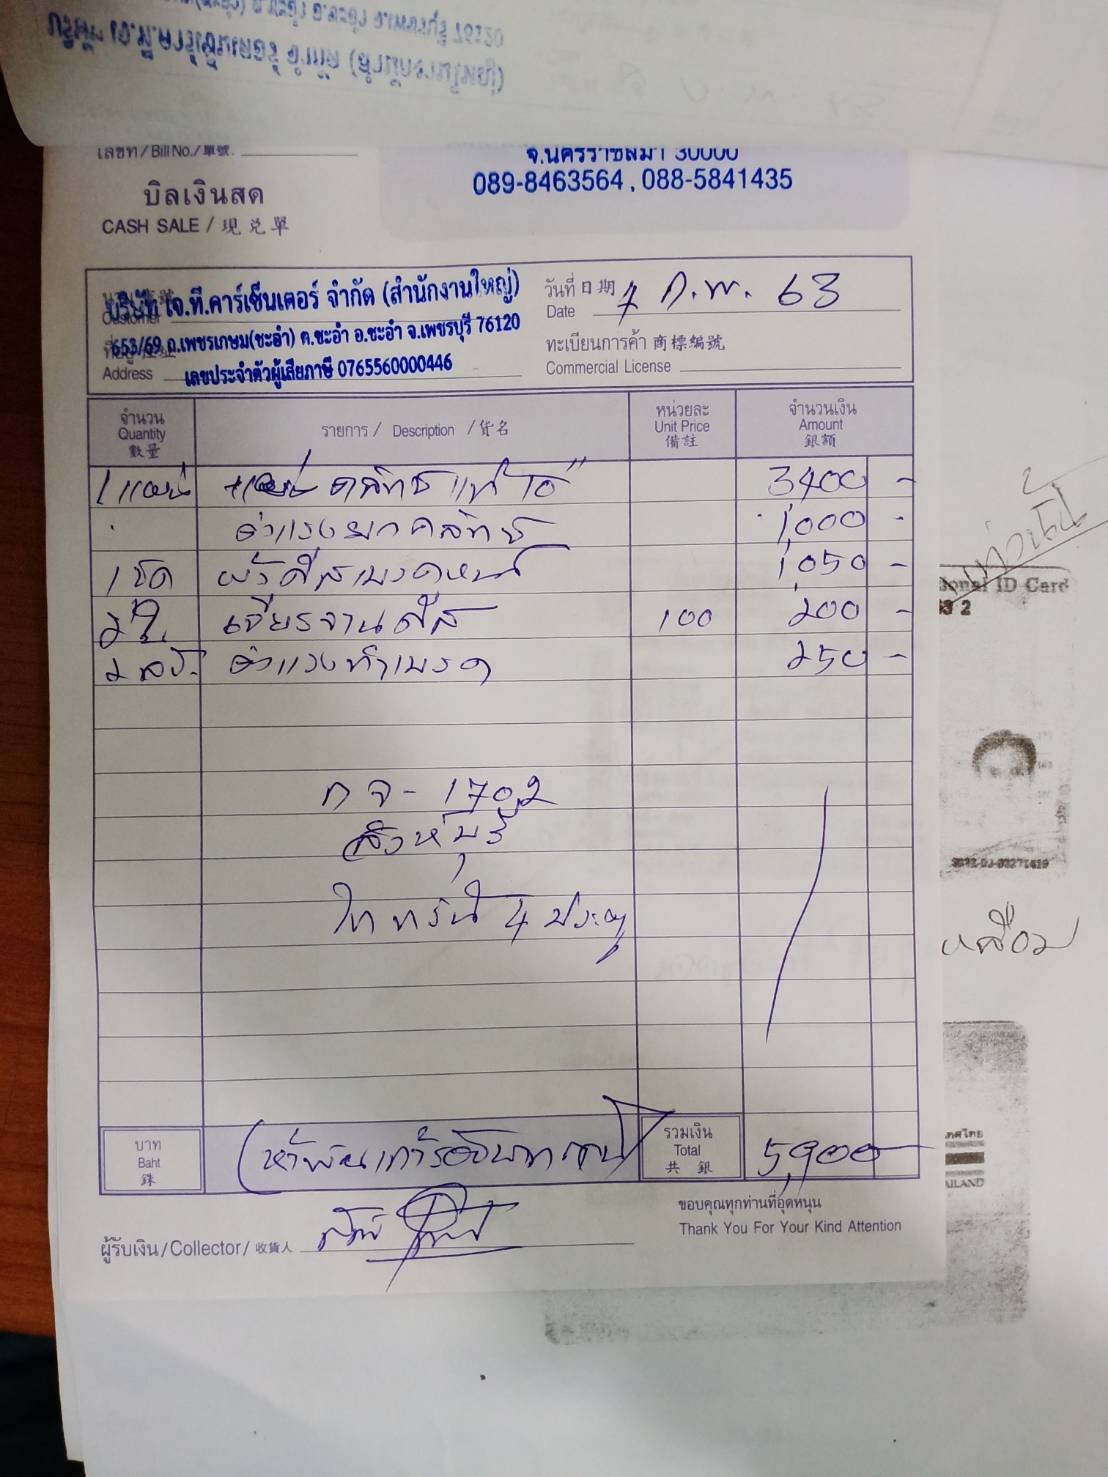 เลขที่/Bill No./單號.
จ.นครราชสีมา 30000
089-8463564 , 088-5841435
บิลเงินสด
CASH SALE / 現兑單
บริษัท เจ.ที.คาร์เซ็นเตอร์ จำกัด (สำนักงานใหญ่)
653/69 ถ.เพชรเกษม(ชะอำ) ต.ชะอำ อ.ชะอำ จ.เพชรบุรี 76120
Address เลขประจำตัวผู้เสียภาษี 0765560000446
วันที่ 日期 7 ก.พ. 63
Date
ทะเบียนการค้า 商標編號
Commercial License
จำนวน รายการ / Description / 貨名 หน่วยละ จำนวนเงิน
Quantity Unit Price Amount
數量 備註 銀額
1 แผ่น แผ่นคลัทช์แท้ 10" 3400 -
ค่าแรงยกคลัทช์ 1,000 -
1 ชุด ผ้าดิสเบรคหน้า 1,050 -
2 ใบ เจียรจานดิส 100 200 -
2 ลร. ค่าแรงทำเบรค 250 -
กจ - 1702
สิงห์บุรี
ไททรัน 4 ประตู
บาท (ห้าพันเก้าร้อยบาทถ้วน) รวมเงิน 5,900
Baht Total
銖 共 銀
ขอบคุณทุกท่านที่อุดหนุน
Thank You For Your Kind Attention
ผู้รับเงิน/Collector/ 收貨人
ional ID Card
เหลือง